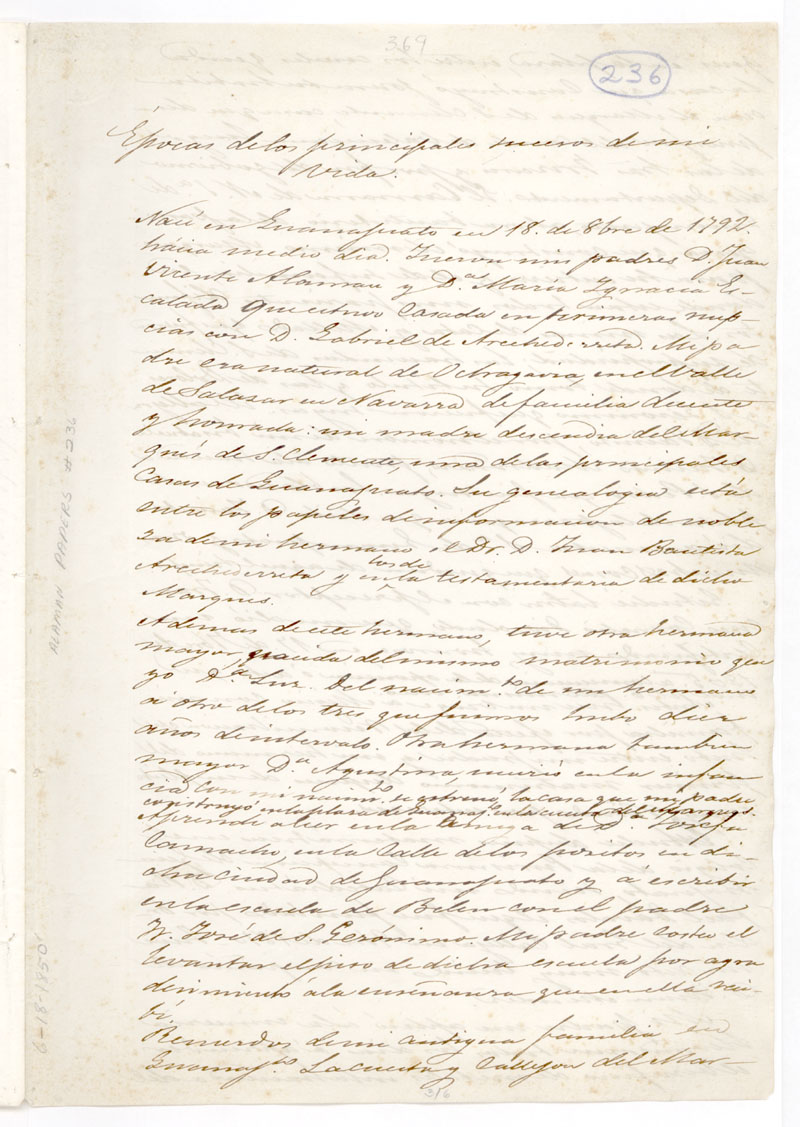 369
236
Épocas de los principales sucesos de mi
vida.
Nací en Guanajuato en 18. de 8bre de 1792.
hácia medio dia. Fueron mis padres D. Juan
Vicente Alaman y Dª. María Ygnacia Es-
calada que estuvo casada en primeras nup-
cias con D. Gabriel de Arechederreta. Mi pa
dre era natural de Ochagavia, en el Valle
de Salazar en Navarra de familia decente
y honrada: mi madre descendia del Mar-
qués de S. Clemente, una de las principales
casas de Guanajuato. Su genealogia está
entre los papeles de informacion de noble
za de mi hermano el Dr. D. Juan Bautista
Arechederreta y en los de la testamentaria de dicho
Marques.
Ademas de este hermano, tuve otra hermana
mayor, nacida del mismo matrimonio que
yo Dª. Luz. Del nacim.to de un hermano
á otro de los tres que fuimos hubo diez
años de intervalo. Otra hermana tambien
mayor Dª. Agustina, murió en la infan
cia. Con mi nacim.to se estrenó la casa que mi padre
construyó en la plaza de Guanaj. en la cuesta del Marques.
Aprendi a leer en la Amiga de Dª. Josefa
Camacho, en la Calle de los positos en di-
cha ciudad de Guanajuato y á escribir
en la escuela de Belen con el padre
Fr. José de S. Gerónimo. Mi padre costeó el
levantar el piso de dicha escuela por agra
decimiento á la enseñanza que en ella reci-
bí.
Recuerdos de mi antigua familia en
Guanaj.to La cuesta y callejon del Mar-
316
ALAMAN PAPERS #236
6-18-1850